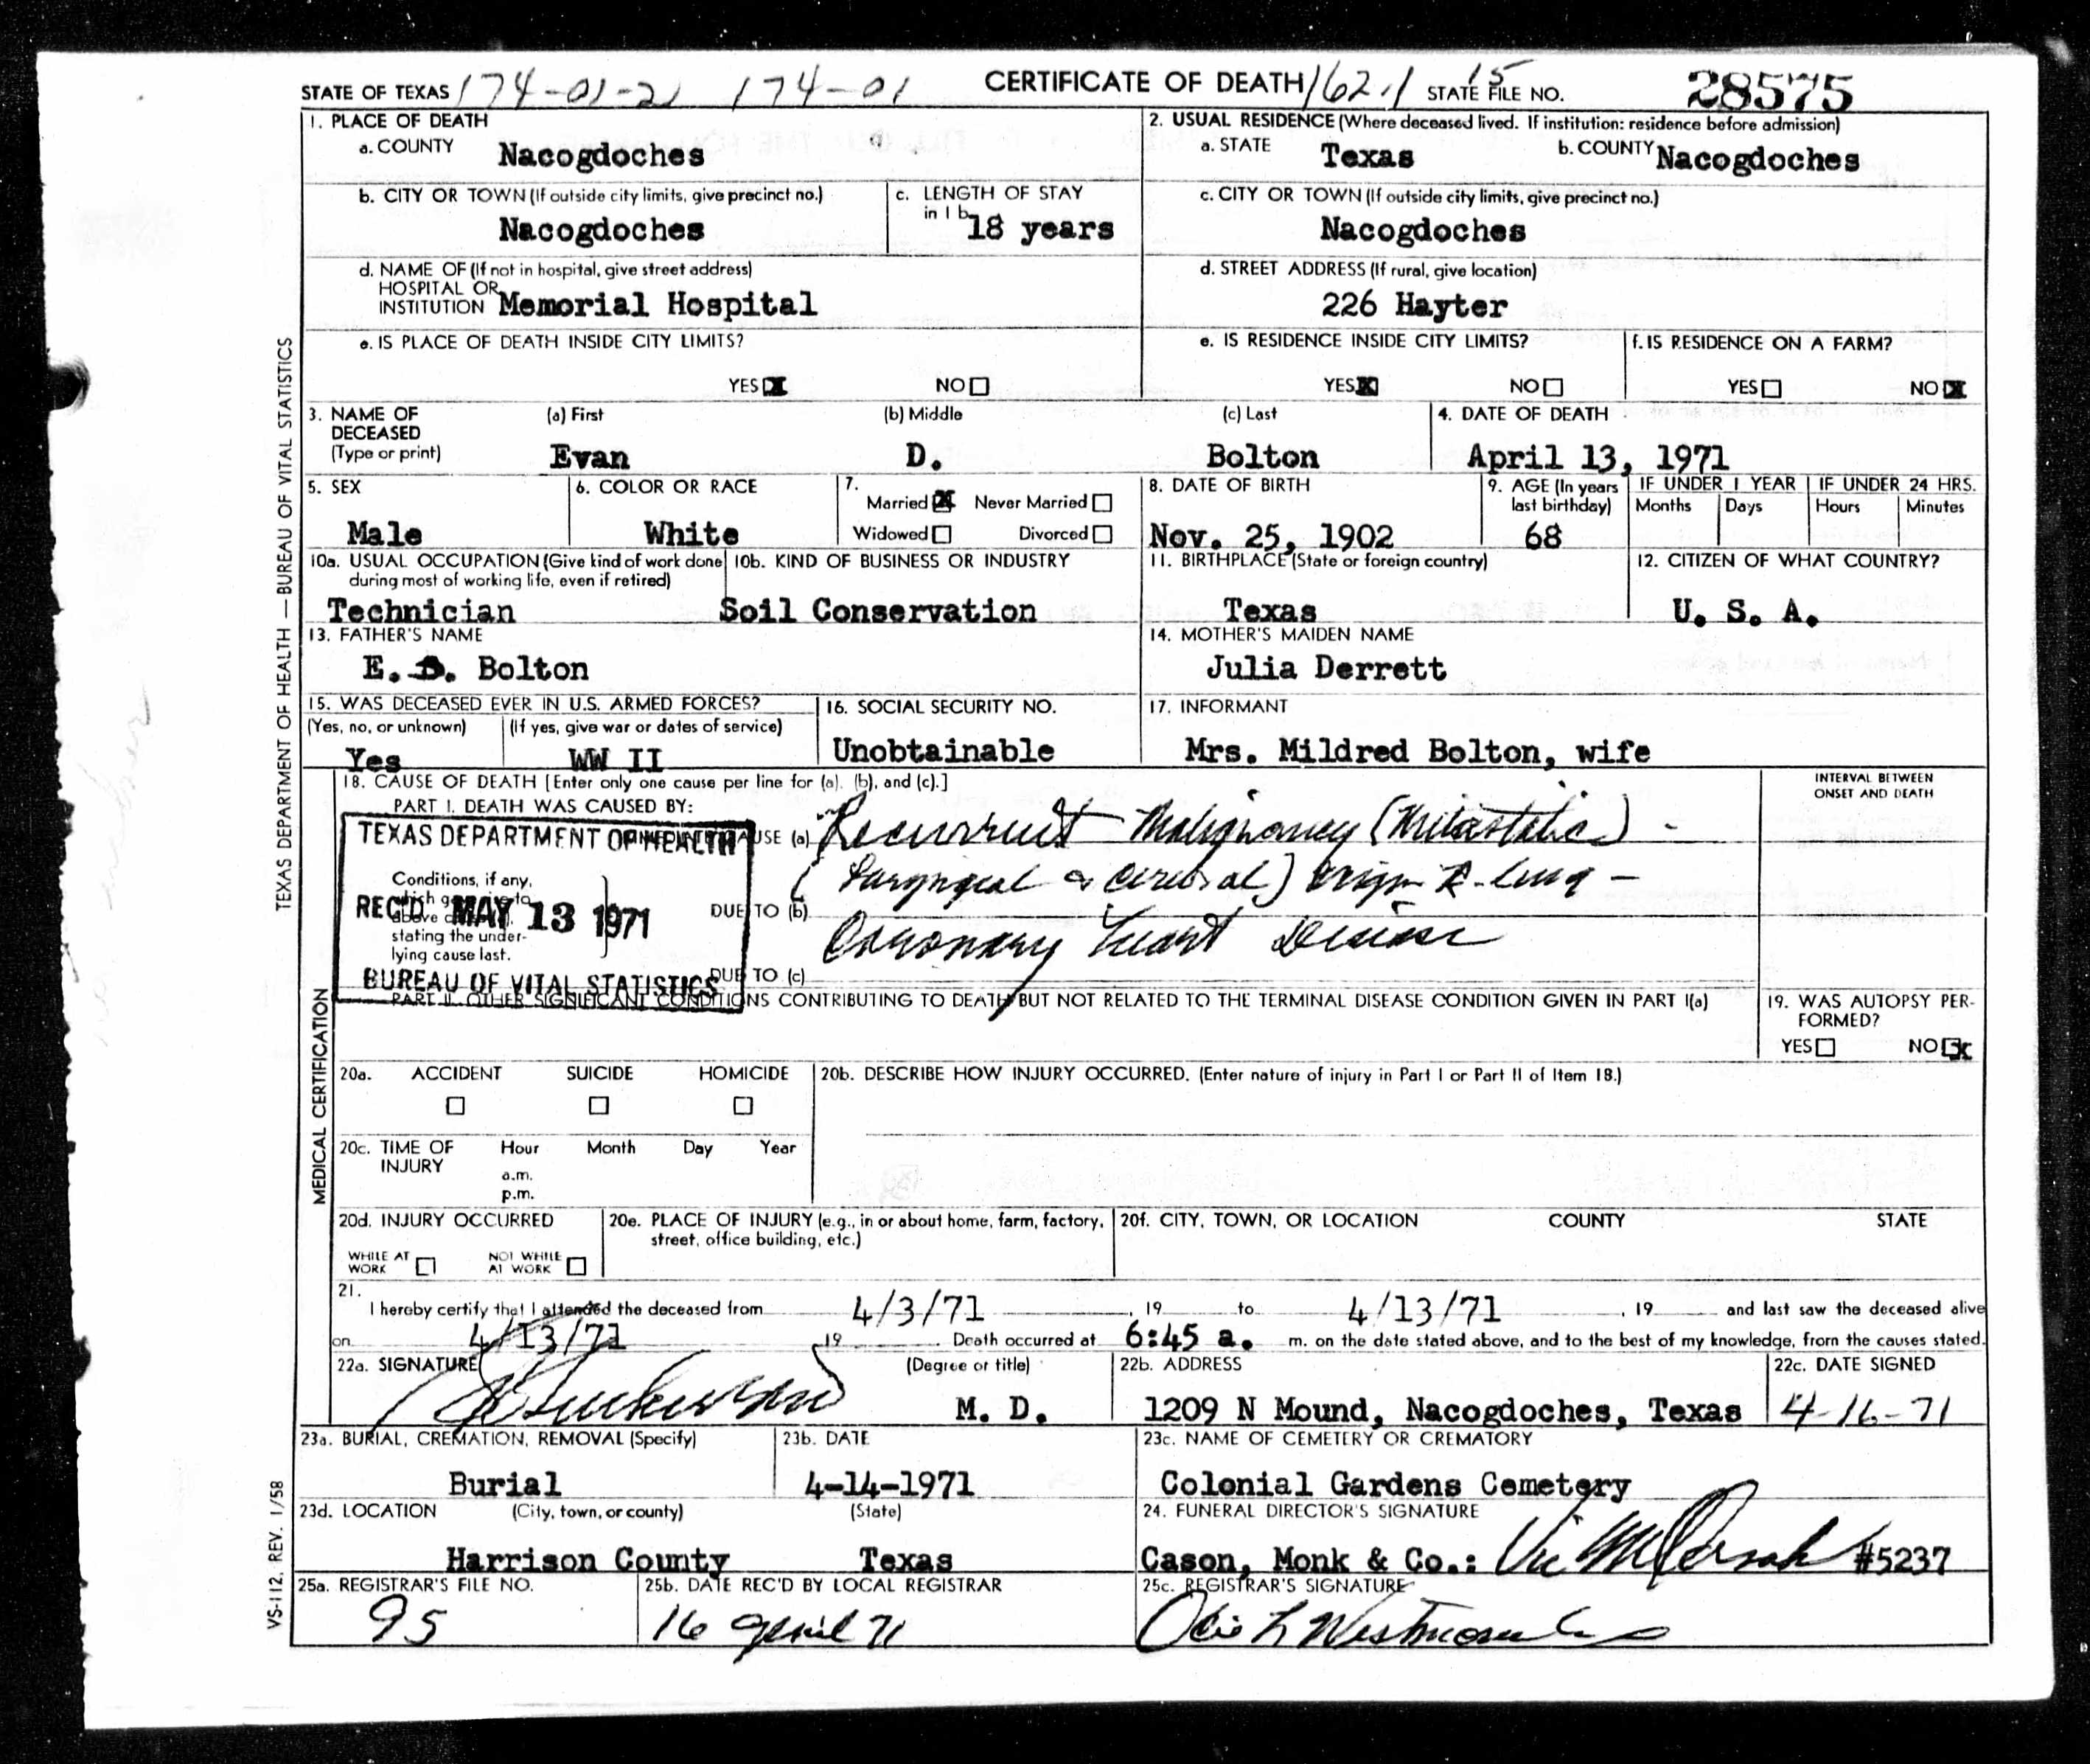 STATE OF TEXAS 174-01-21 174-01 CERTIFICATE OF DEATH 162.1 15 STATE FILE NO. 28575
1. PLACE OF DEATH
a. COUNTY Nacogdoches
2. USUAL RESIDENCE (Where deceased lived. If institution: residence before admission)
a. STATE Texas b. COUNTY Nacogdoches
b. CITY OR TOWN (If outside city limits, give precinct no.)
Nacogdoches
c. LENGTH OF STAY
in 1 b
18 years
c. CITY OR TOWN (If outside city limits, give precinct no.)
Nacogdoches
d. NAME OF (If not in hospital, give street address)
HOSPITAL OR
INSTITUTION Memorial Hospital
d. STREET ADDRESS (If rural, give location)
226 Hayter
e. IS PLACE OF DEATH INSIDE CITY LIMITS?
YES X NO
e. IS RESIDENCE INSIDE CITY LIMITS?
YES X NO
f. IS RESIDENCE ON A FARM?
YES NO X
3. NAME OF DECEASED
(Type or print)
(a) First (b) Middle (c) Last
Evan D. Bolton
4. DATE OF DEATH
April 13, 1971
5. SEX
Male
6. COLOR OR RACE
White
7.
Married X Never Married
Widowed Divorced
8. DATE OF BIRTH
Nov. 25, 1902
9. AGE (In years
last birthday)
68
IF UNDER 1 YEAR
Months Days
IF UNDER 24 HRS.
Hours Minutes
10a. USUAL OCCUPATION (Give kind of work done
during most of working life, even if retired)
Technician
10b. KIND OF BUSINESS OR INDUSTRY
Soil Conservation
11. BIRTHPLACE (State or foreign country)
Texas
12. CITIZEN OF WHAT COUNTRY?
U. S. A.
13. FATHER'S NAME
E. D. Bolton
14. MOTHER'S MAIDEN NAME
Julia Derrett
15. WAS DECEASED EVER IN U.S. ARMED FORCES?
(Yes, no, or unknown) (If yes, give war or dates of service)
Yes WW II
16. SOCIAL SECURITY NO.
Unobtainable
17. INFORMANT
Mrs. Mildred Bolton, wife
18. CAUSE OF DEATH [Enter only one cause per line for (a), (b), and (c).]
INTERVAL BETWEEN
ONSET AND DEATH
PART I. DEATH WAS CAUSED BY:
(a) Recurrent Malignancy (Metastatic) -
(Laryngeal & Cerebral) Origin R. Lung -
Conditions, if any,
stating the under-
lying cause last.
DUE TO (b)
Coronary Heart Disease
DUE TO (c)
TEXAS DEPARTMENT OF HEALTH
REC'D MAY 13 1971
BUREAU OF VITAL STATISTICS
PART II. OTHER SIGNIFICANT CONDITIONS CONTRIBUTING TO DEATH BUT NOT RELATED TO THE TERMINAL DISEASE CONDITION GIVEN IN PART I(a)
19. WAS AUTOPSY PER-
FORMED?
YES NO X
20a. ACCIDENT SUICIDE HOMICIDE
20b. DESCRIBE HOW INJURY OCCURRED. (Enter nature of injury in Part I or Part II of Item 18.)
20c. TIME OF
INJURY
Hour Month Day Year
a.m.
p.m.
20d. INJURY OCCURRED
WHILE AT
WORK
NOT WHILE
AT WORK
20e. PLACE OF INJURY (e.g., in or about home, farm, factory,
street, office building, etc.)
20f. CITY, TOWN, OR LOCATION COUNTY STATE
21.
I hereby certify that I attended the deceased from 4/3/71, 19 to 4/13/71, 19 and last saw the deceased alive
on 4/13/71, 19. Death occurred at 6:45 a. m. on the date stated above, and to the best of my knowledge, from the causes stated.
22a. SIGNATURE (Degree or title)
M. D.
22b. ADDRESS
1209 N Mound, Nacogdoches, Texas
22c. DATE SIGNED
4-16-71
23a. BURIAL, CREMATION, REMOVAL (Specify)
Burial
23b. DATE
4-14-1971
23c. NAME OF CEMETERY OR CREMATORY
Colonial Gardens Cemetery
23d. LOCATION (City, town, or county) (State)
Harrison County Texas
24. FUNERAL DIRECTOR'S SIGNATURE
Cason, Monk & Co.: #5237
25a. REGISTRAR'S FILE NO.
95
25b. DATE REC'D BY LOCAL REGISTRAR
16 April 71
25c. REGISTRAR'S SIGNATURE
TEXAS DEPARTMENT OF HEALTH — BUREAU OF VITAL STATISTICS
MEDICAL CERTIFICATION
VS-112, REV. 1/58